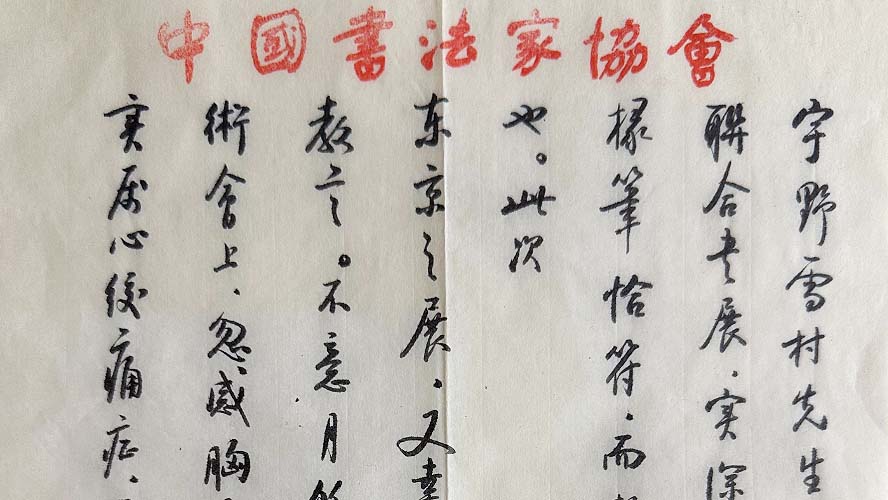 中國書法家協會
宇野雪村先生
聯合书展，实深
椽筆恰符，而
也。此次
东京之展，又幸
教言。不意月
術會上，忽感胸
实属心绞痛症，